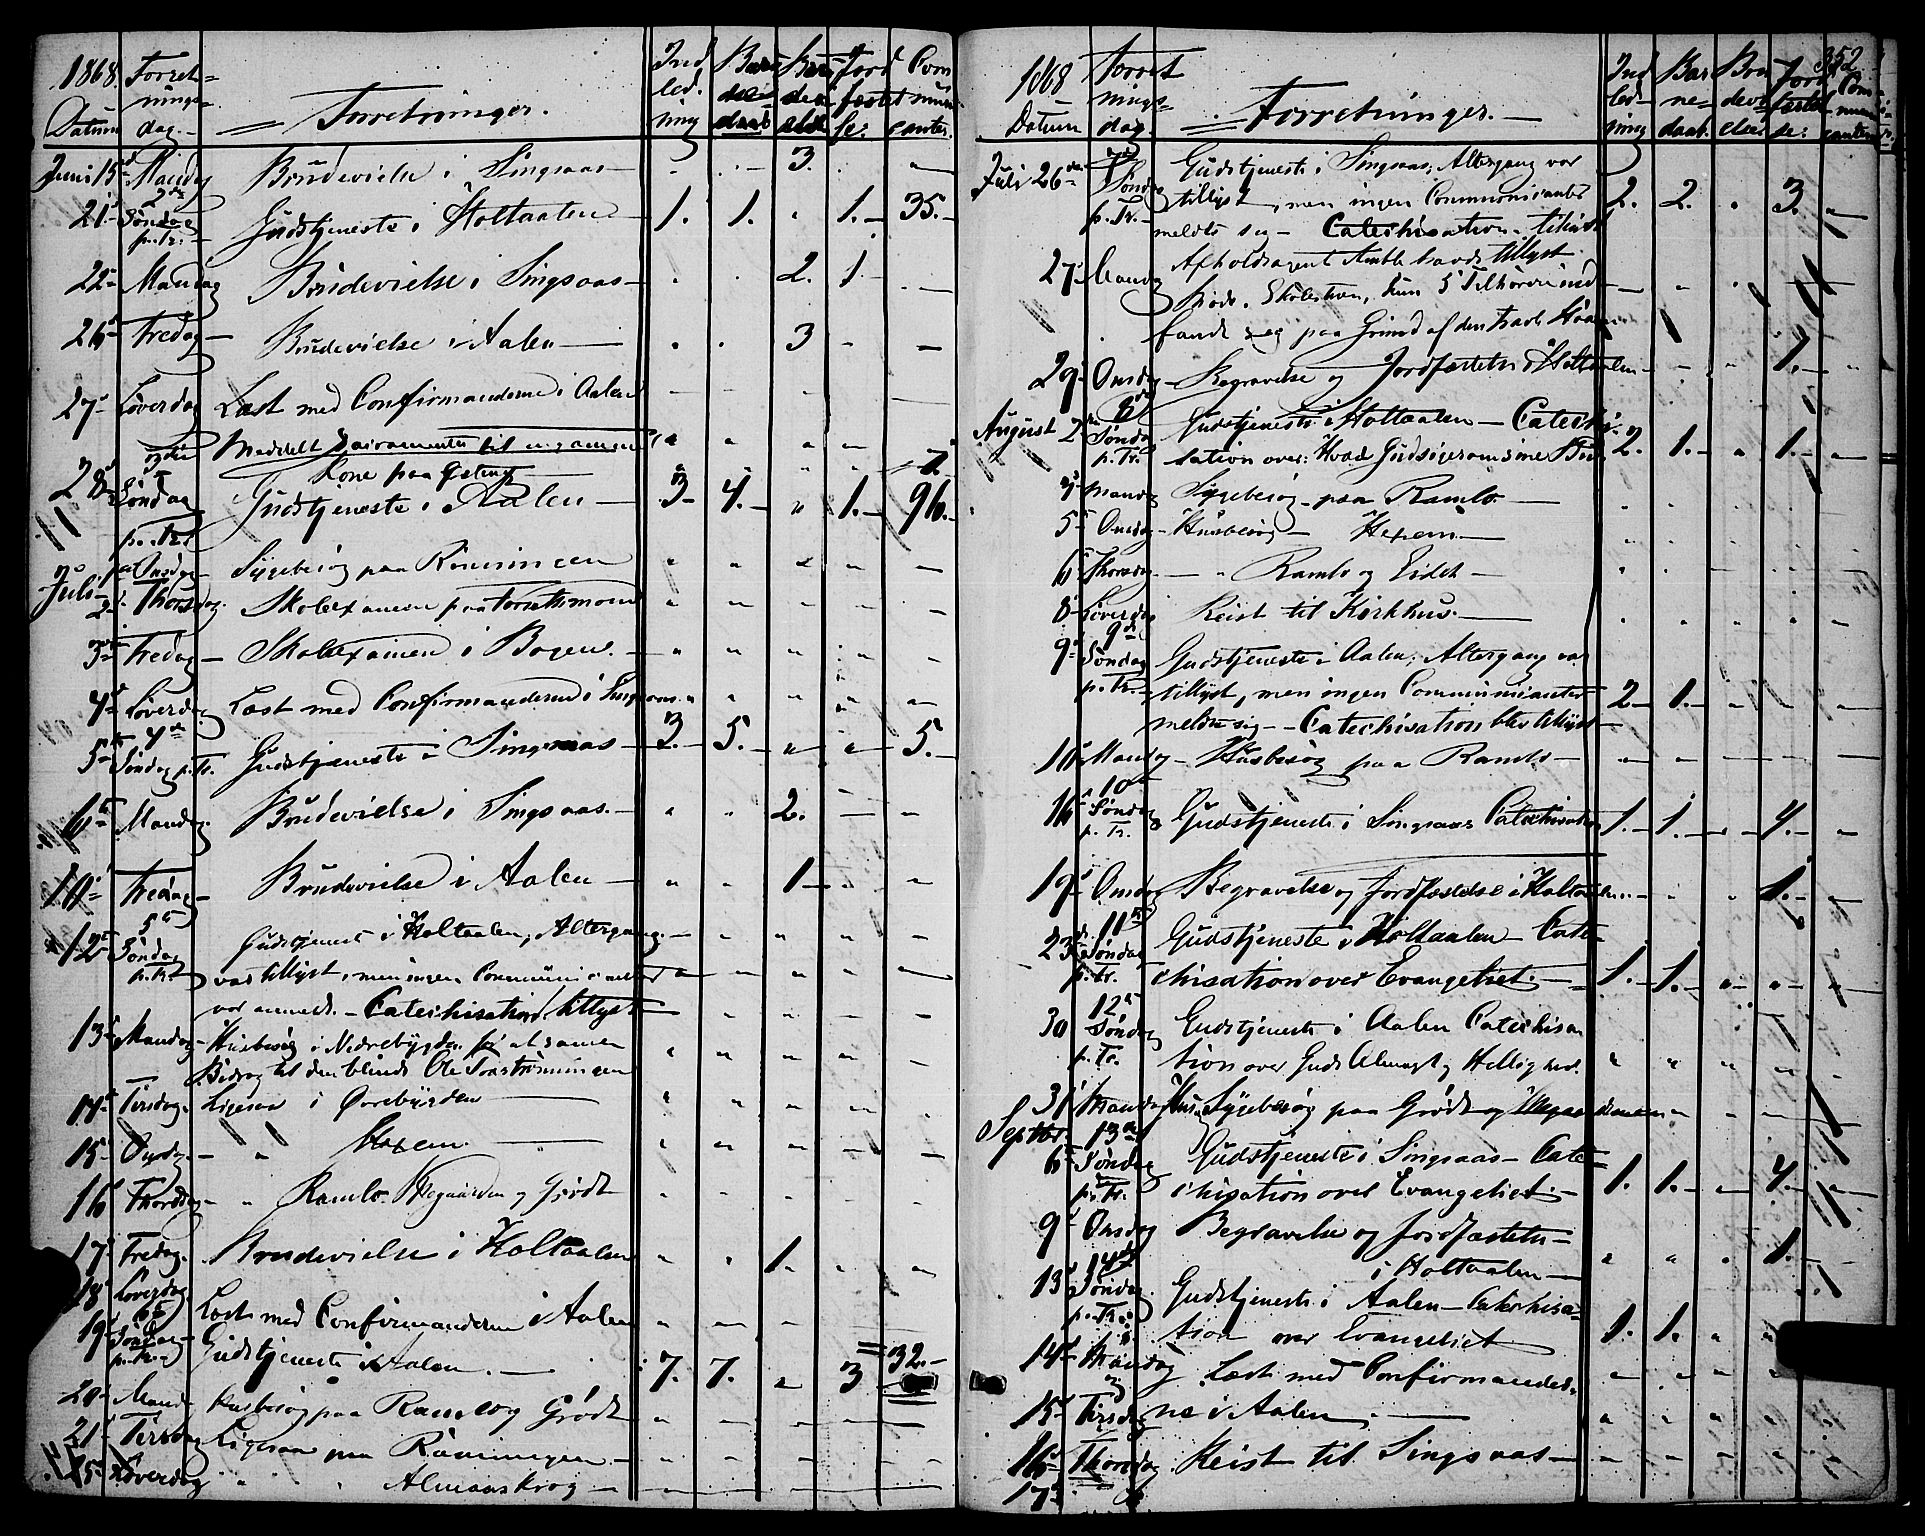 1868. Forret= Ind Barn Bru Jord Com
nings= led. de fæstel muni
Datum dag. Forretninger. ning daab else se. canter.
Juni 15d Mandag Brudevielse i Singsaas - 3.
2de
21d Søndag Gudstjeneste i Holtaalen 1. 1. " 1. 35.
p. Tr.
22 Mandag Brudevielse i Singsaas 2. 1
26 Fredag Brudevielse i Aalen 3
27 Løverdag Læst med Confirmanderne i Aalen
Meddelt Sacramentet til en gammel
Kone paa 1.
28 Søndag Gudstjeneste i Aalen 3 4. " 1. 96.
p. Tr.
Juli Onsdag Sygebesøg paa Rönningen
2 Thorsdag Skolexamen paa
3 Fredag Skolexamen i Bogen
4 Løverdag Læst med Confirmanderne i Singsaas
4de
5 Søndag p. Tr. Gudstjeneste i Singsaas 3. 5. " " 5.
6 Mandag Brudevielse i Singsaas. 2.
10 Fredag Brudevielse i Aalen 1
5
12 Søndag Gudstjeneste i Holtaalen, Altergang
p. Tr. var tillyst, men ingen Communicanter
var anmeldt. - Catechisation tillyst
13 Mandag Husbesøg i Nedrebygden for at samen
Bidrag til den blinde Ole
14 Tirsdag. Ligesaa i Øvrebygden
15 Onsdag " Hexem
16 Thorsdag " Ramlo og Grödt
17 Fredag. Brudevielse i Holtaalen 1.
18 Løverdag Læst med Confirmanderne i Aalen
19 Søndag Gudstjeneste i Aalen. 7. 7. " 3 32.
p. Tr.
20 Mand Husbesøg paa Ramlo og Grödt
21 Tirsdag Ligesaa paa Rönningen
25 Løverdag " " Almaaskrog
352
1868 Forret Ind Bar Bru Jord Com
nings= led ne devi fæstel muni
Datum dag. Forretninger. ning daab. else. se. canter
Juli 26de Søndag Gudstjeneste i Singsaas, Altergang var
p. Tr. tillyst, men ingen Communicanter 2. 2. " 3.
meldte sig - Catechisation tillyst
27 Mandag Afholdsagent havde tillyst
Møde i Skolestuen, kun 5 Tilhørere ind=
fandt sig paa Grund af den travle
29 Onsdag Begravelse og Jordfæstelse i Holtaalen 1.
8de
August 2 Søndag Gudstjeneste i Holtaalen - Catechi=
p. Tr. sation over: Hvad Gud siger om sine Bud 2. 1. " 1.
3 Mandag Sygebesøg paa Ramlo
5 Onsdag Husbesøg Hexem
6 Thorsdag " Ramlo og Eidet
8 Løverdag Reist til Kirkhus.
9de
9 Søndag Gudstjeneste i Aalen, Altergang var
p. Tr. tillyst, men ingen Communicanter 2 1.
meldte sig - Catechisation blev tillyst
10 Mandag Husbesøg paa Ramlo
10
16 Søndag Gudstjeneste i Singsaas Catechisation 1. 1. 4.
p. Tr.
19 Onsdag Begravelse og Jordfæstelse i Holtaalen 1.
11
23 Søndag Gudstjeneste i Holtaalen - Cate=
p. Tr. chisation over Evangeliet. 1. 1.
12
30 Søndag Gudstjeneste i Aalen Catechisa
p. Tr. tion over Guds Almagt og Hellighed.
31 Mandag Hus Sygebesøg paa Grödt og
Septbr. 13
6 Søndag Gudstjeneste i Singsaas - Cate=
p. Tr. chisation over Evangeliet. 1. 1. 4.
9 Onsdag Begravelse og Jordfæstelse 1.
14 i Holtaalen
13 Søndag Gudstjeneste i Aalen - Catechisa=
p. Tr. tion over Evangeliet 1. 1.
14 Mandag Læst med Confirmander=
og
15 Tirsdag ne i Aalen.
16 Thorsdag Reist til Singsaas
17